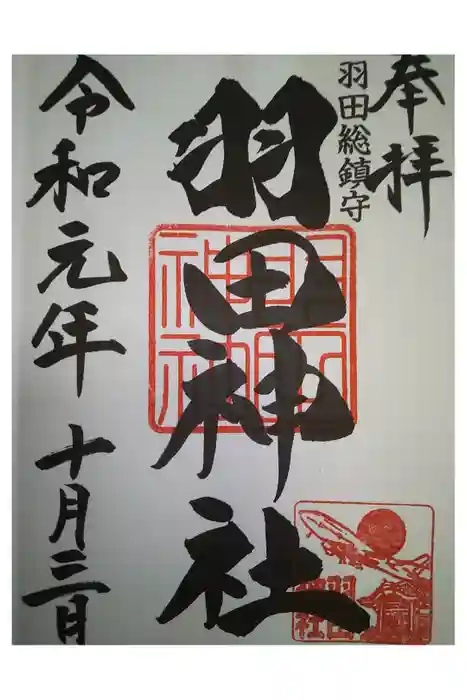 奉拝
羽田総鎮守
羽田神社
令和元年十月三日
羽田
神社
羽田
神社